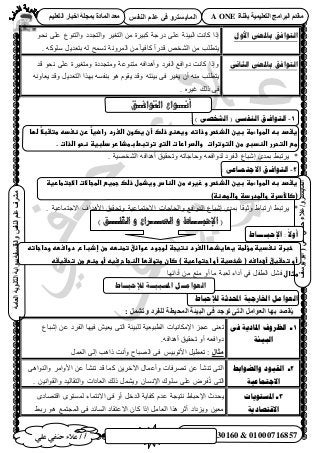 مقدم البرامج التعليمية بقناة A ONE
الماسترو فى علم النفس
معد المادة بمجلة اخبار التعليم
التوافق بالمعنى الأول
إذا كانت البيئة على درجة كبيرة من التغير والتجدد والتنوع على نحو
يتطلب من الشخص قدراً كافياً من المرونة تسمح له بتعديل سلوكه .
التوافق بالمعنى الثانى
وإذا كانت دوافع الفرد وأهدافه متنوعة ومتجددة ومتغيرة على نحو قد
يتطلب منه أن يغير فى بيئته وقد يقوم هو بنفسه بهذا التعديل وقد يعاونه
فى ذلك غيره .
أنـــواع التوافـــق
١- التوافق النفسى ( الشخصى ) :
يقصد به المواءمة بين الشخص وذاته ويعنى ذلك أن يكون الفرد راضياً عن نفسه متقبلاً لها
مع التحرر النسبى من التوترات والصراعات التى ترتبط بمشاعر سلبية نحو الذات .
* يرتبط بمدى إشباع الفرد لدوافعه وحاجاته وتحقيق أهدافه الشخصية .
٢- التوافق الاجتماعى
يقصد به المواءمة بين الشخص و غيره من الناس ويشمل ذلك جميع المجالات الاجتماعية
(كالأسرة والمدرسة والمهنة)
يرتبط ارتباط وثيقاً بمدى إشباع الدوافع والحاجات الاجتماعية وتحقيق الأهداف الاجتماعية .
( الإحبـــاط و الصـــراع و القلـــق )
أولا : الإحبـــاط
خبرة نفسية مؤلمة يعايشها الفرد نتيجة لوجود عوائق تمنعه من إشباع دوافعه وحاجاته
أو تحقيق أهدافه ( شخصية أو اجتماعية )
مثال فشل الطفل فى أداء لعبة ما أو منع من أدائها
العوامـل المسببـة للإحبـاط
العوامل الخارجية المحدثة للإحباط
يقصد بها العوامل التى توجد فى البيئة المحيطة للفرد وتشمل :
١- الظروف المادية فى البيئة
تعنى عجز الإمكانيات الطبيعية للبيئة التى يعيش فيها الفرد عن إشباع
دوافعه أو تحقيق أهدافه.
مثال : تعطيل الأتوبيس فى الصباح وأنت ذاهب إلى العمل
٢- القيود والضوابط الاجتماعية
التى تنشأ عن تصرفات وأعمال الآخرين كما قد تنشأ عن الأوامر والنواهى
التى تفرض على سلوك الإنسان ويشمل ذلك العادات والتقاليد والقوانين .
٣- المستويات الاقتصادية
يحدث الإحباط نتيجة عدم كفاية الدخل أو فى الانتماء لمستوى اقتصادى
معين ويزداد أثر هذا العامل إذا كان الاعتقاد السائد فى المجتمع هو ربط
أ / علاء حنفي علي
30160 & 01000716857